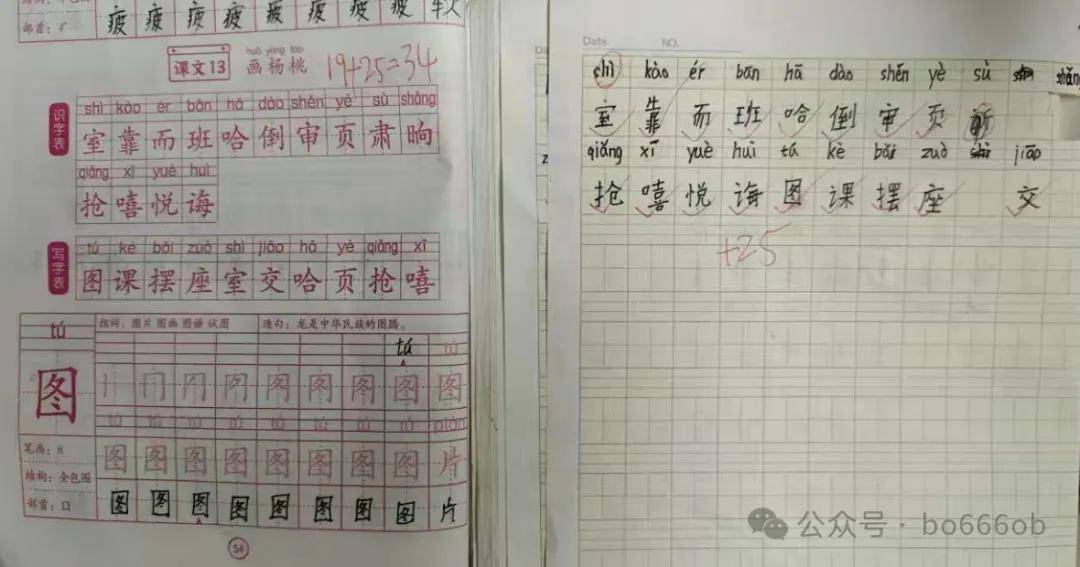 部首：疒
疲 疲 疲 疲 疲 疲 疲 疲
huà yáng táo
课文13 画杨桃 19+25=34
识字表
shì kào ér bān hā dào shěn yè sù shǎng
室 靠 而 班 哈 倒 审 页 肃 晌
qiǎng xī yuè huì
抢 嘻 悦 诲
写字表
tú kè bǎi zuò shì jiāo hā yè qiǎng xī
图 课 摆 座 室 交 哈 页 抢 嘻
tú
图
组词：图片 图画 图谱 试图 造句：龙是中华民族的图腾。
tú tú
图 图
tú tú tú tú tú tú tú tú piàn
笔画：8
图 图 图 图 图 图 图 图 片
结构：全包围
部首：口
图 图 图 图 图 图 图 图 片
54
Date. NO.
shì kào ér bān hā dào shěn yè sù shǎng
室 靠 而 班 哈 倒 审 页
qiǎng xī yuè huì tú kè bǎi zuò jiāo
抢 嘻 悦 诲 图 课 摆 座 交
+25
公众号·bo666ob